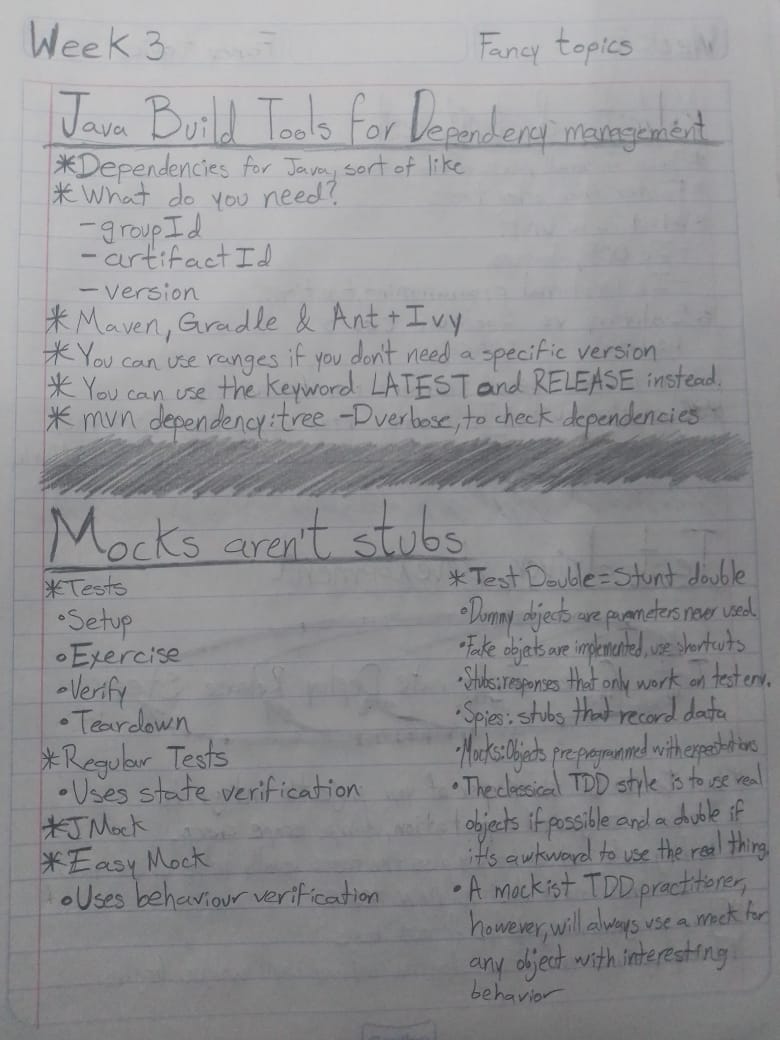 Week 3
Fancy topics
Java Build Tools For Dependency management
*Dependencies for Java, sort of like
*What do you need?
-groupId
-artifactId
-version
* Maven, Gradle & Ant + Ivy
*You can use ranges if you don't need a specific version
* You can use the keyword LATEST and RELEASE instead.
* mvn dependency:tree -Dverbose, to check dependencies
Mocks aren't stubs
*Tests
•Setup
•Exercise
•Verify
•Teardown
*Regular Tests
•Uses state verification
*JMock
*Easy Mock
•Uses behaviour verification
*Test Double = Stunt double
•Dummy objects are parameters never used
•Fake objects are implemented, use shortcuts
•Stubs: responses that only work on test env.
•Spies: stubs that record data
•Mocks: Objects preprogrammed with expectations
•The classical TDD style is to use real
objects if possible and a double if
it's awkward to use the real thing
• A mockist TDD practitioner,
however, will always use a mock for
any object with interesting
behavior